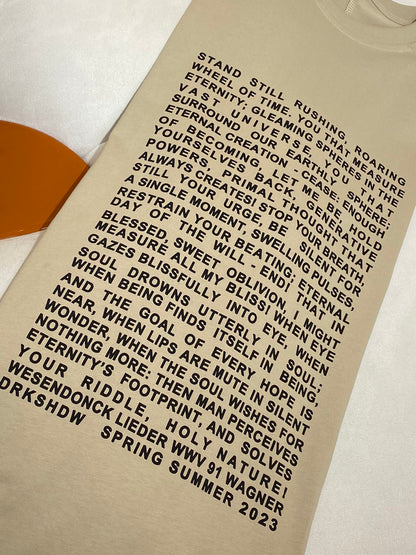 STAND STILL RUSHING, ROARING
WHEEL OF TIME, YOU THAT MEASURE
ETERNITY; GLEAMING SPHERES IN THE
VAST UNIVERSE, YOU THAT
SURROUND OUR EARTHLY SPHERE,
ETERNAL CREATION - CEASE: ENOUGH
OF BECOMING, LET ME BE! HOLD
YOURSELVES BACK, GENERATIVE
POWERS, PRIMAL THOUGHT THAT
ALWAYS CREATES! STOP YOUR BREATH,
STILL YOUR URGE, BE SILENT FOR
A SINGLE MOMENT, SWELLING PULSES,
RESTRAIN YOUR BEATING; ETERNAL
DAY OF THE WILL - END; THAT IN
BLESSED, SWEET OBLIVION, I MIGHT
MEASURE ALL MY BLISS! WHEN EYE
GAZES BLISSFULLY INTO EYE, WHEN
SOUL DROWNS UTTERLY IN SOUL;
WHEN BEING FINDS ITSELF IN BEING,
AND THE GOAL OF EVERY HOPE IS
NEAR, WHEN LIPS ARE MUTE IN SILENT
WONDER, WHEN THE SOUL WISHES FOR
NOTHING MORE: THEN MAN PERCEIVES
ETERNITY'S FOOTPRINT, AND SOLVES
YOUR RIDDLE, HOLY NATURE!
WESENDONCK LIEDER WWV 91 WAGNER
DRKSHDW SPRING SUMMER 2023